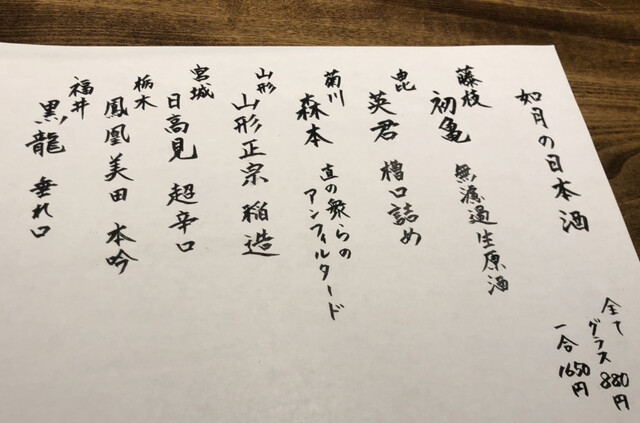 如月の日本酒
藤枝
初亀 無濾過生原酒
英君 槽口詰め
菊川
森本 直の衆らの
アンフィルタード
山形
山形正宗 稲造
宮城
日高見 超辛口
栃木
鳳凰美田 本吟
福井
黒龍 垂れ口
全て
グラス 880円
一合 1650円